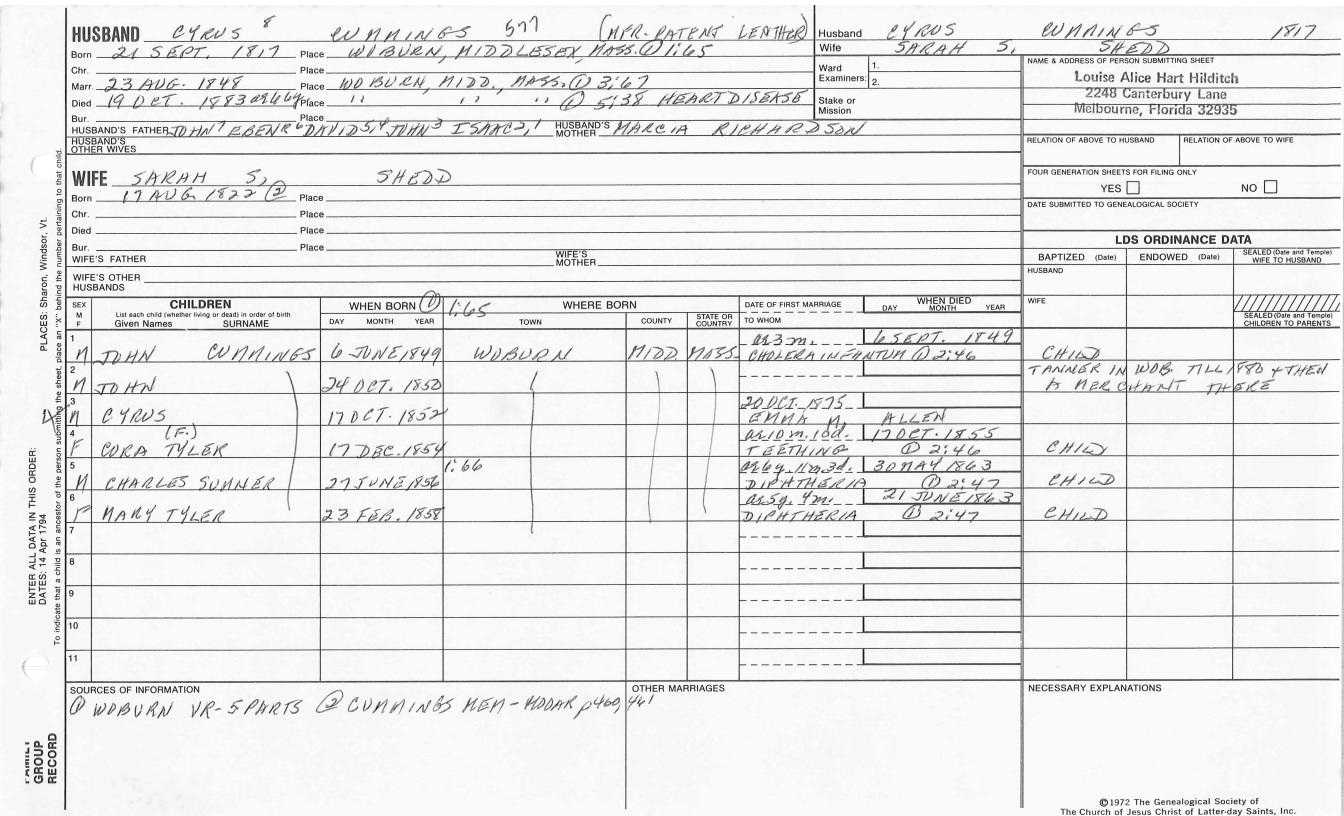 HUSBAND CYRUS 8 CUMMINGS 577 (MFR. PATENT LEATHER)
Born 21 SEPT. 1817 Place WOBURN, MIDDLESEX, MASS. ① 1:65
Chr. Place
Marr. 23 AUG. 1848 Place WOBURN, MIDD., MASS. ① 3:67
Died 19 OCT. 1883 Place " " " ① 5:38 HEART DISEASE
Bur.
HUSBAND'S FATHER JOHN 7 EBENR 6 DAVID 5,4 JOHN 3 ISAAC 2,1 HUSBAND'S MOTHER MARCIA RICHARDSON
HUSBAND'S OTHER WIVES
WIFE SARAH S. SHEDD
Born 17 AUG. 1822 ② Place
Chr. Place
Died Place
Bur. Place
WIFE'S FATHER WIFE'S MOTHER
WIFE'S OTHER HUSBANDS
Husband CYRUS CUMMINGS 1817
Wife SARAH S. SHEDD
Ward Examiners: 1. 2.
Stake or Mission
NAME & ADDRESS OF PERSON SUBMITTING SHEET
Louise Alice Hart Hilditch
2248 Canterbury Lane
Melbourne, Florida 32935
RELATION OF ABOVE TO HUSBAND RELATION OF ABOVE TO WIFE
FOUR GENERATION SHEETS FOR FILING ONLY
YES NO
DATE SUBMITTED TO GENEALOGICAL SOCIETY
LDS ORDINANCE DATA
BAPTIZED (Date) ENDOWED (Date) SEALED (Date and Temple) WIFE TO HUSBAND
HUSBAND
WIFE
SEALED (Date and Temple) CHILDREN TO PARENTS
SEX M F
CHILDREN
List each child (whether living or dead) in order of birth
Given Names SURNAME
WHEN BORN ① 1:65
DAY MONTH YEAR
WHERE BORN
TOWN COUNTY STATE OR COUNTRY
DATE OF FIRST MARRIAGE
TO WHOM
WHEN DIED
DAY MONTH YEAR
1 æ 3 m. 6 SEPT. 1849
M JOHN CUMMINGS 6 JUNE 1849 WOBURN MIDD. MASS. CHOLERA INFANTUM ① 2:46 CHILD
2 TANNER IN WOB. TILL 1880 & THEN
M JOHN 24 OCT. 1850 A MERCHANT THERE
3 20 OCT. 1875
M CYRUS 17 OCT. 1852 EMMA M. ALLEN
4 (F.) æ 10 m. 10 d. 17 OCT. 1855
F CORA TYLER 17 DEC. 1854 TEETHING ① 2:46 CHILD
5 1:66 æ 6 y. 11 m. 3 d. 30 MAY 1863
M CHARLES SUMNER 27 JUNE 1856 DIPHTHERIA ① 2:47 CHILD
6 æ 5 y. 4 m. 21 JUNE 1863
F MARY TYLER 23 FEB. 1858 DIPHTHERIA ① 2:47 CHILD
7
8
9
10
11
SOURCES OF INFORMATION
① WOBURN VR-5 PARTS ② CUMMINGS MEM-MOOAR p460, 461
OTHER MARRIAGES
NECESSARY EXPLANATIONS
©1972 The Genealogical Society of
The Church of Jesus Christ of Latter-day Saints, Inc.
PLACES: Sharon, Windsor, Vt.
ENTER ALL DATA IN THIS ORDER:
DATES: 14 Apr 1794
To indicate that a child is an ancestor of the person submitting the sheet, place an "X" behind the number pertaining to that child.
FAMILY GROUP RECORD